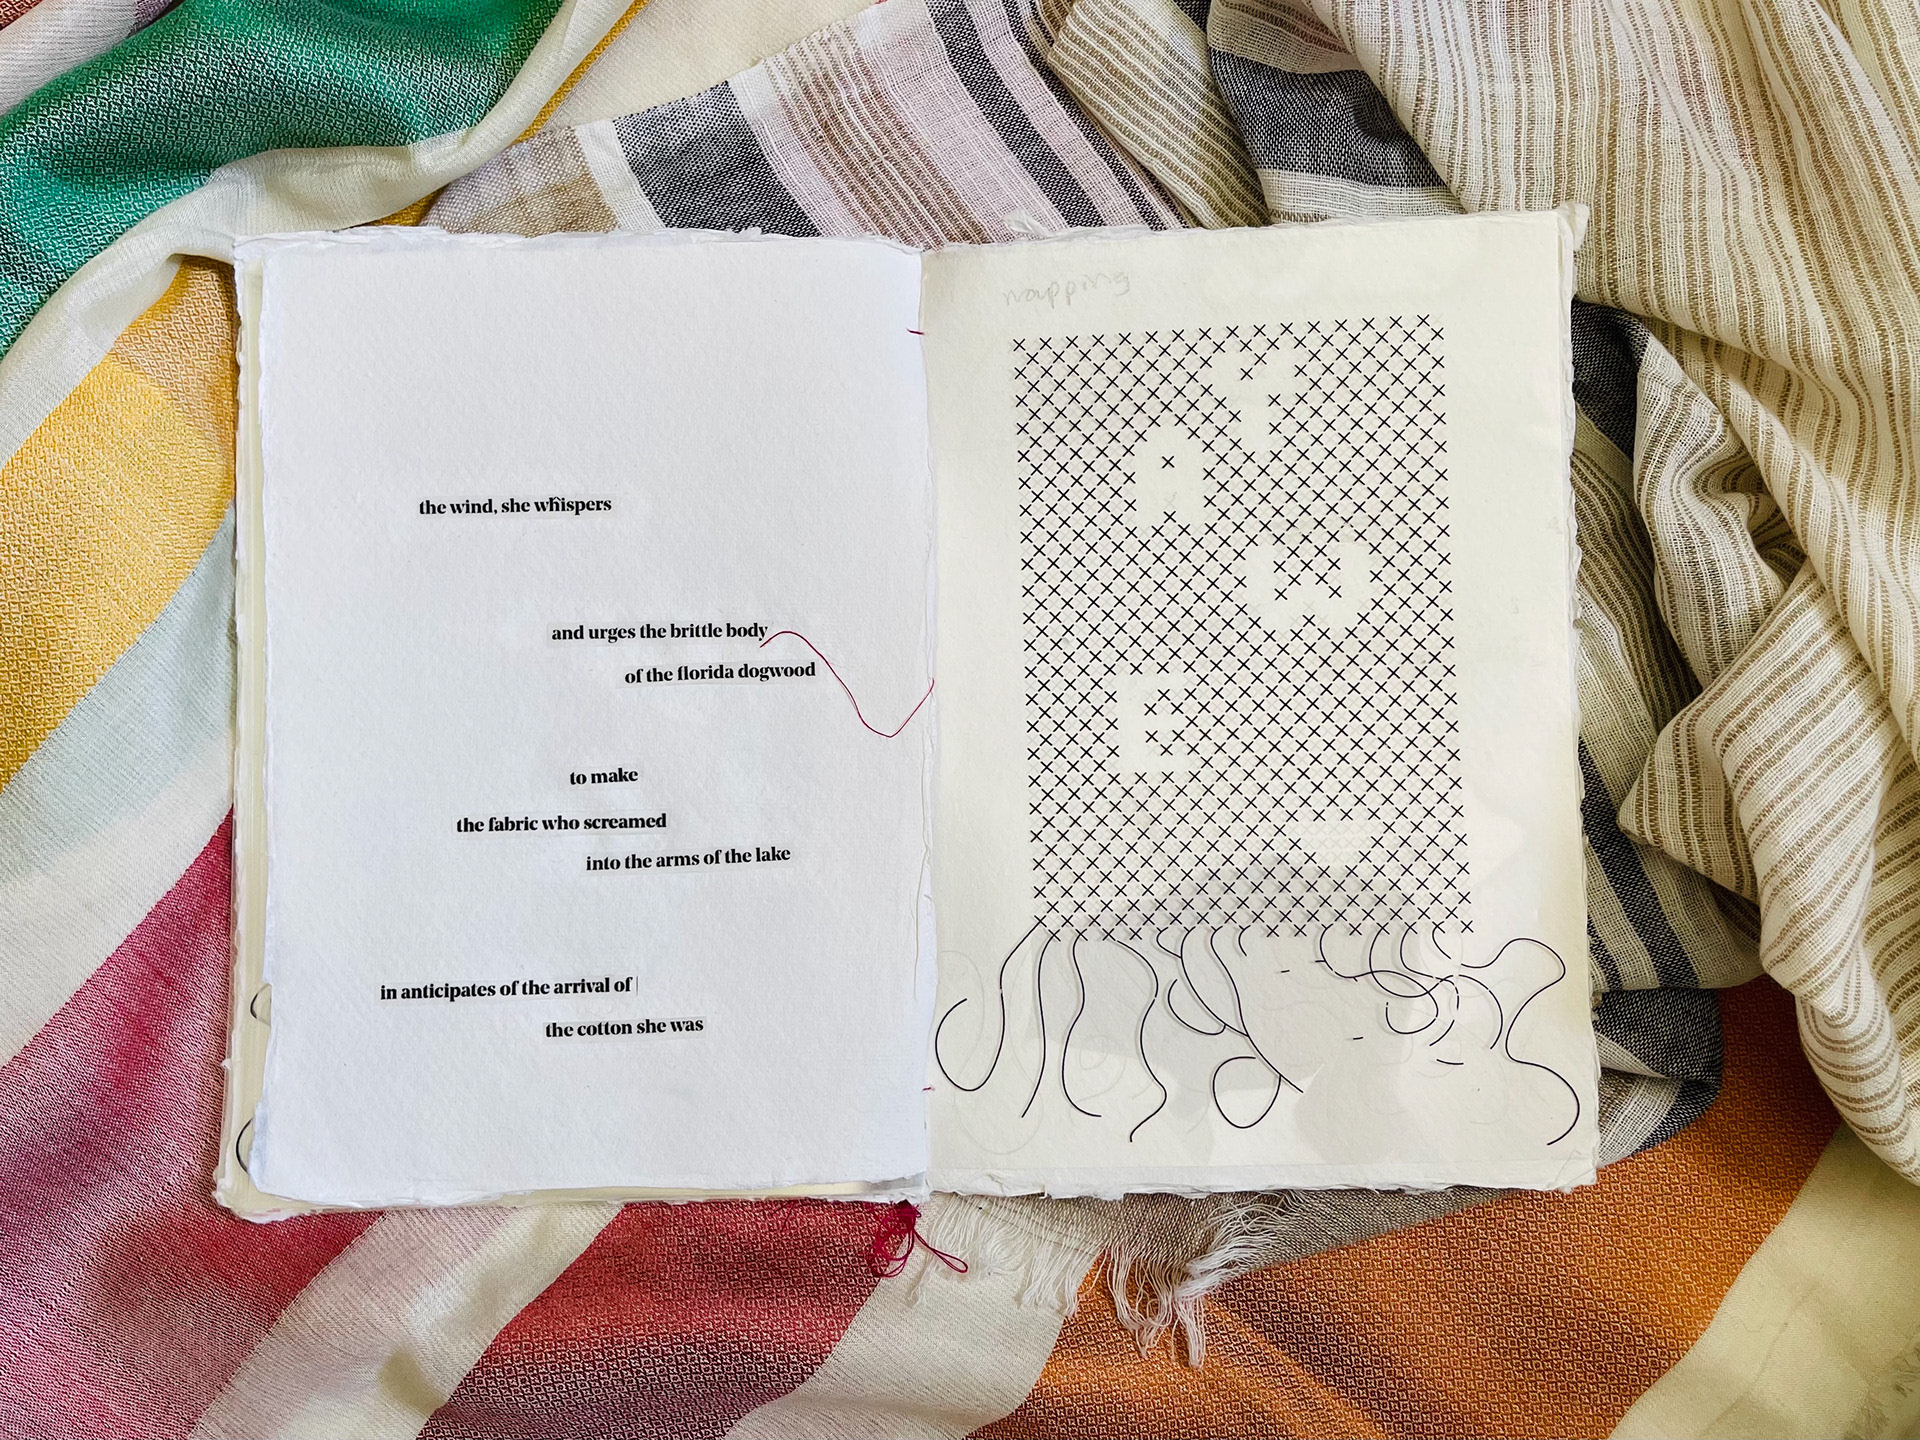 the wind, she whispers
and urges the brittle body
of the florida dogwood
to make
the fabric who screamed
into the arms of the lake
in anticipates of the arrival of
the cotton she was
Y
A
W
E